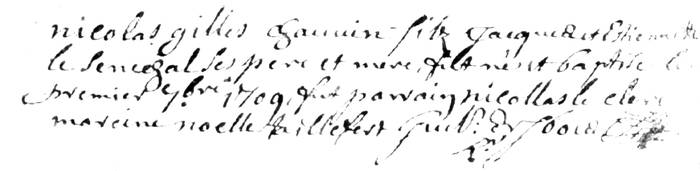 nicolas gilles chauvin filz Jacque et Estiennette
le Senechal ses pere et mere, fut né et baptise le
premier 7bre 1709, fut parrain nicollas le clerc
maraine noelle taillefert